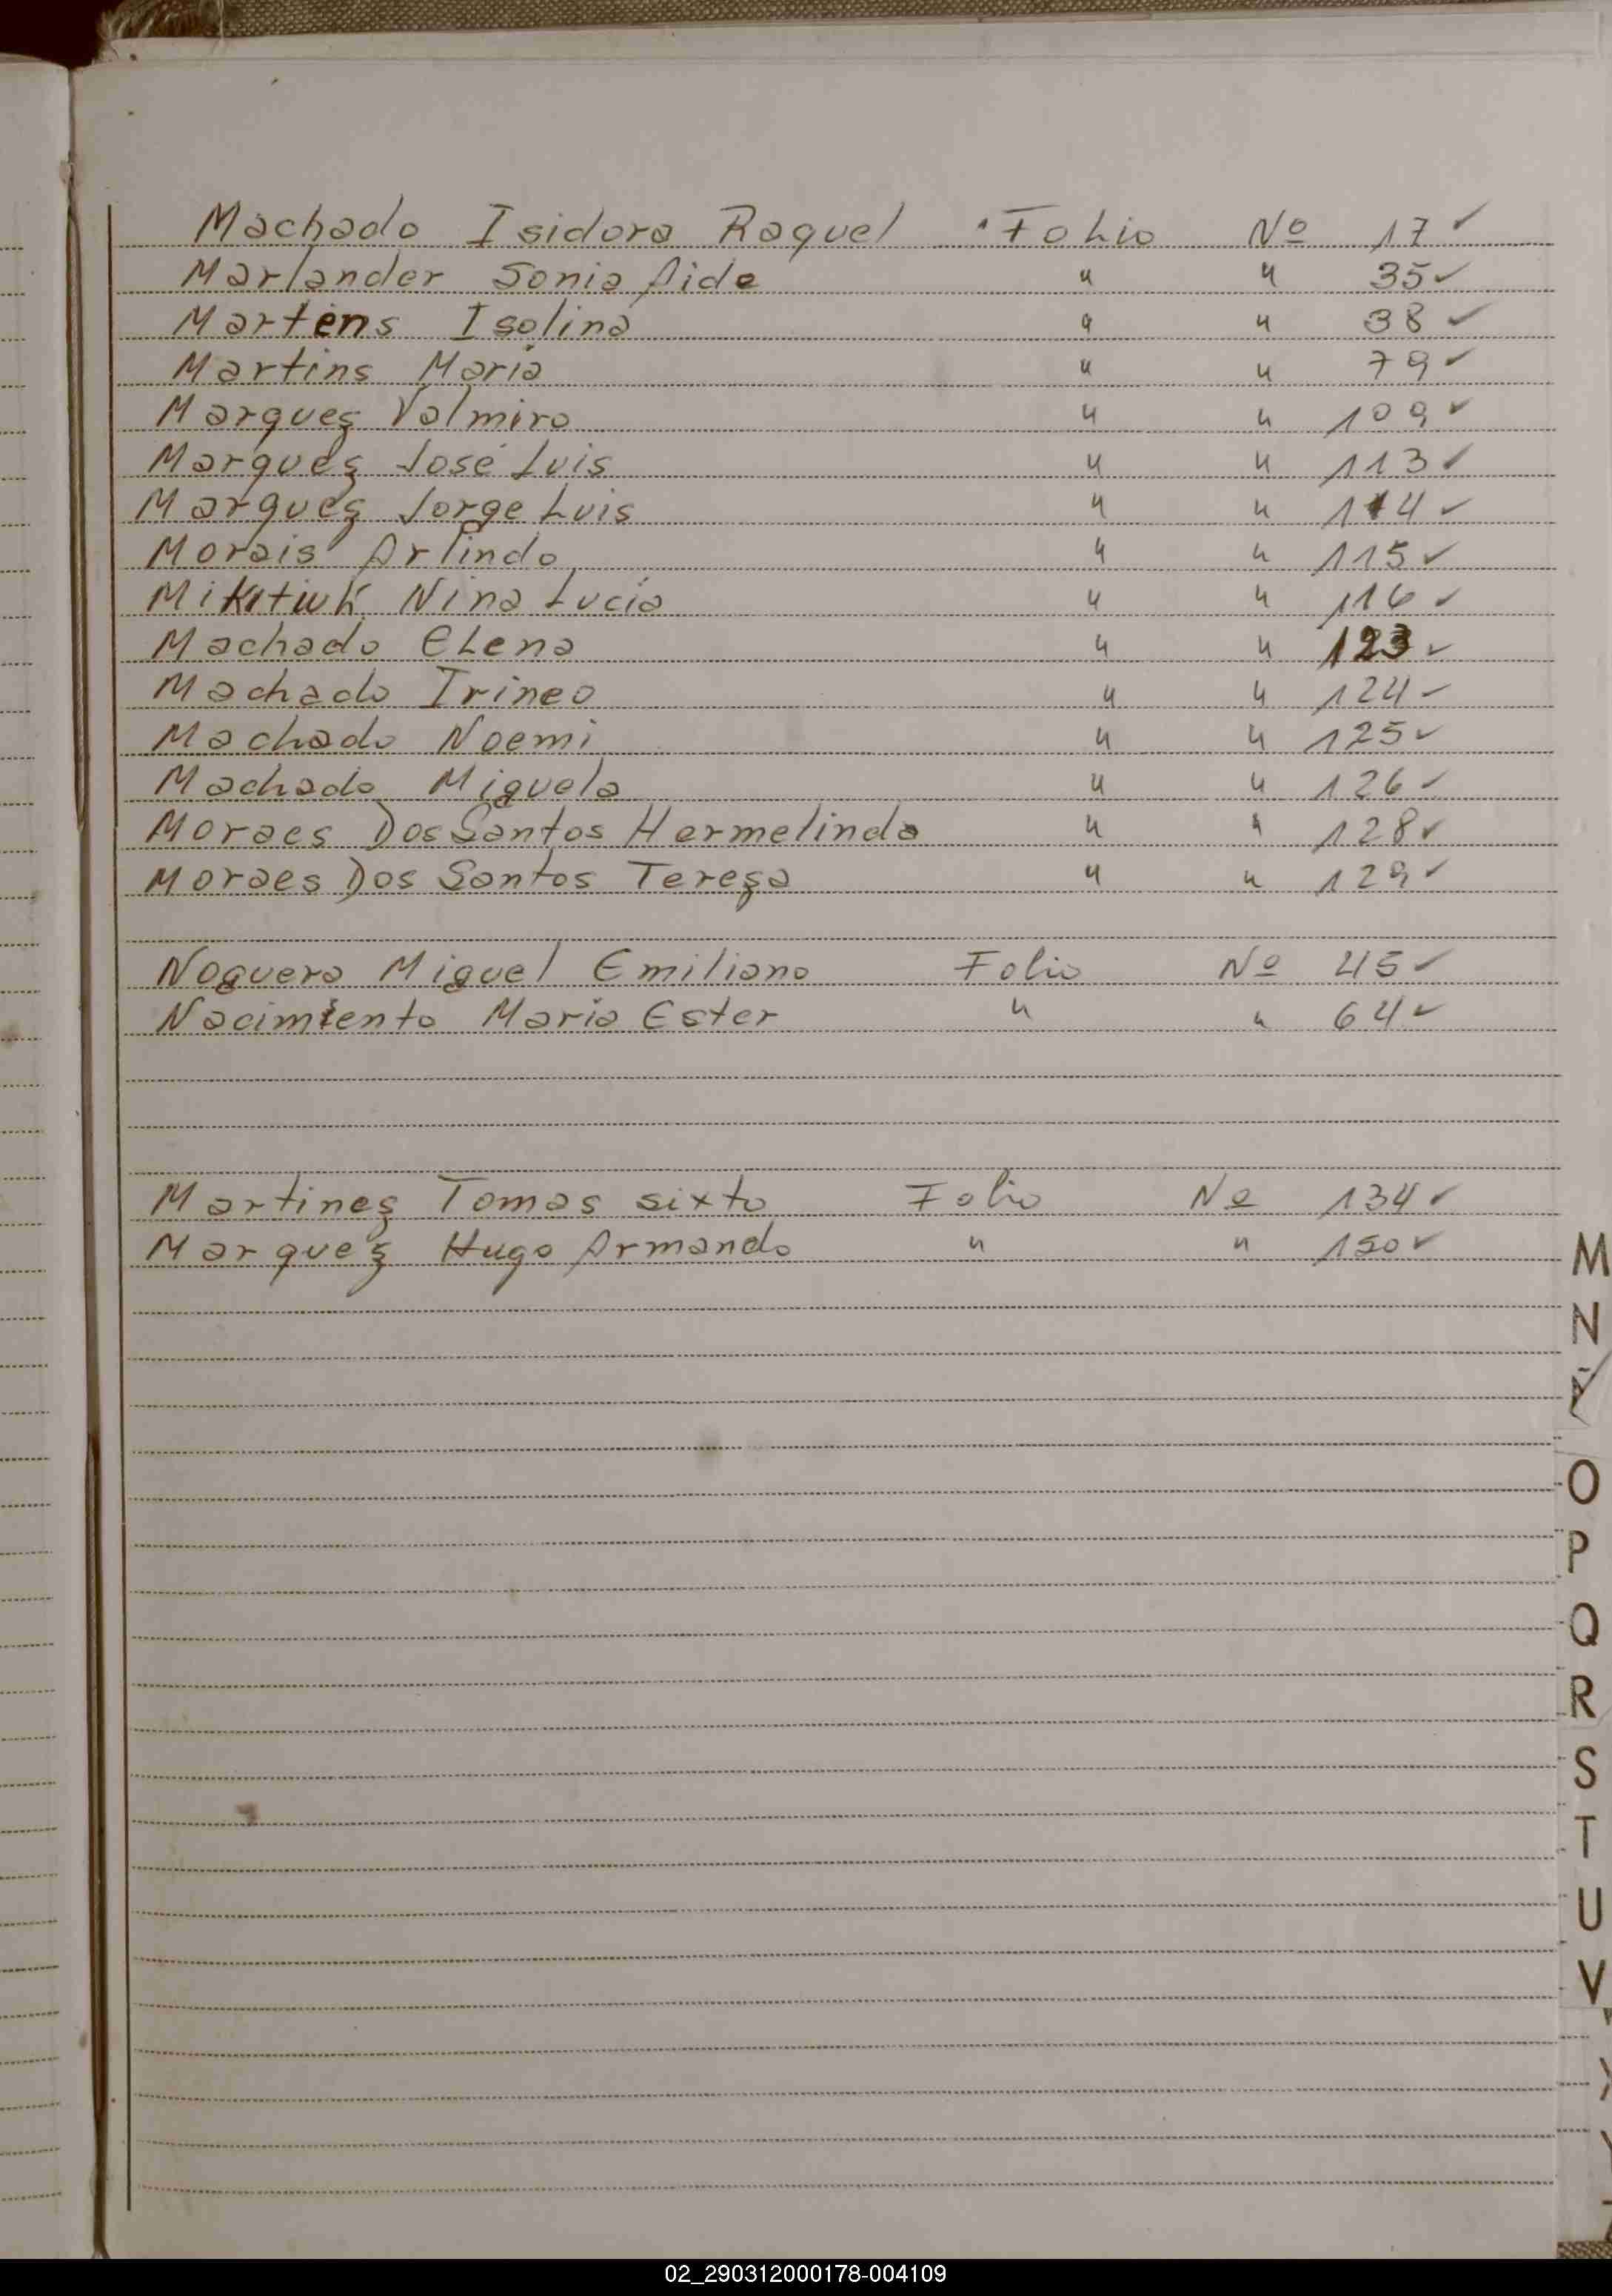 Machado Isidora Raquel Folio Nº 17 ✓
Marlander Sonia Aide " " 35 ✓
Martens Isolina " " 38 ✓
Martins Maria " " 79 ✓
Marquez Valmiro " " 109 ✓
Marquez José Luis " " 113 ✓
Marquez Jorge Luis " " 114 ✓
Morais Arlindo " " 115 ✓
Nina Lucía " " 116 ✓
Machado Elena " " 123 ✓
Machado Irineo " " 124 ✓
Machado Noemi " " 125 ✓
Machado Miguela " " 126 ✓
Moraes Dos Santos Hermelinda " " 128 ✓
Moraes Dos Santos Tereza " " 129 ✓
Noguera Miguel Emiliano Folio Nº 45 ✓
Nacimiento Maria Ester " " 64 ✓
Martinez Tomas sixto Folio Nº 134 ✓
Marquez Hugo Armando " " 150 ✓
M
N
O
P
Q
R
S
T
U
V
02_290312000178-004109